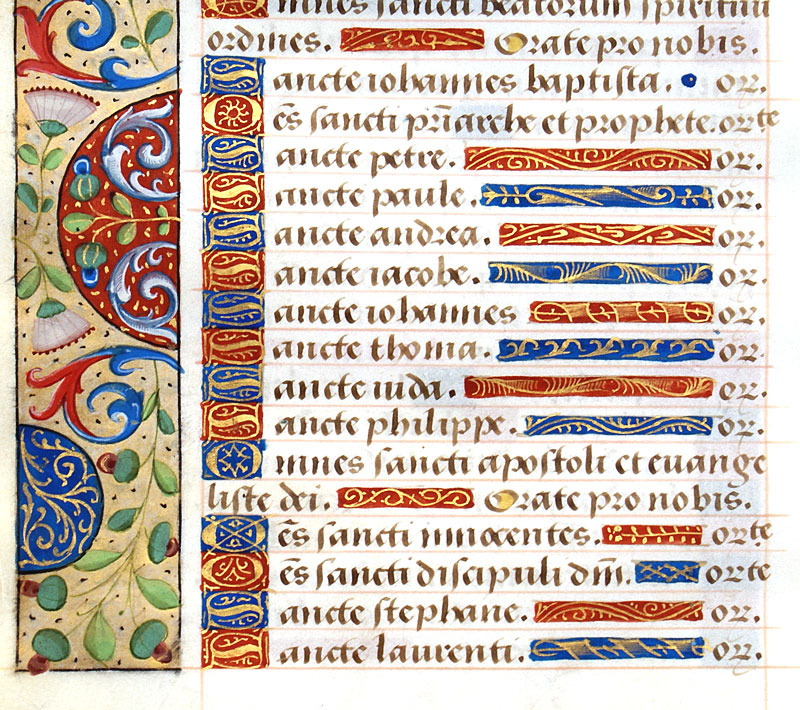 Omnes sancti beatorum spirituu
ordines. Orate pro nobis.
Sancte iohannes baptista. or.
Oẽs sancti pr̃iarche et prophete. orte
Sancte petre. or.
Sancte paule. or.
Sancte andrea. or.
Sancte iacobe. or.
Sancte iohannes or.
Sancte thoma. or.
Sancte iuda. or.
Sancte philippe. or.
Omnes sancti apostoli et euange
liste dei. Orate pro nobis.
Oẽs sancti innocentes. orte
Oẽs sancti discipuli dñi. orte
Sancte stephane. or.
Sancte laurenti. or.